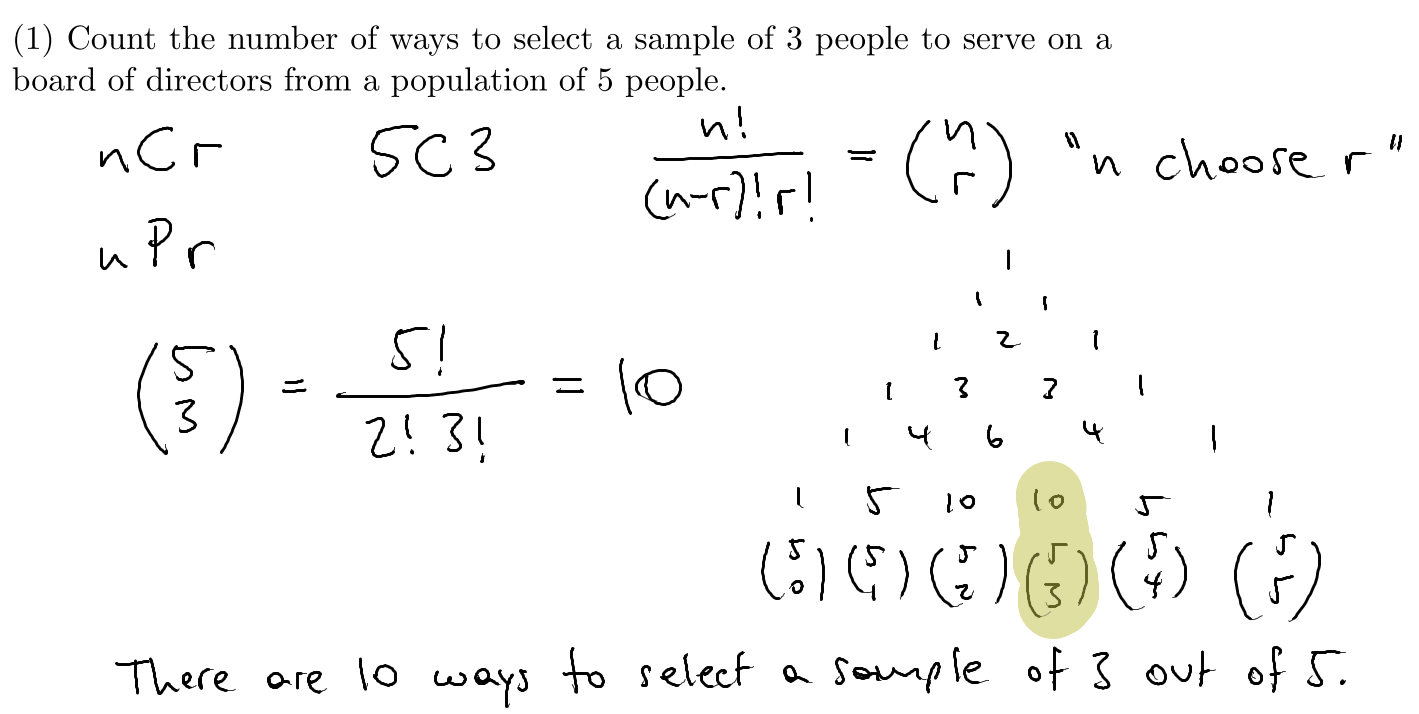 (1) Count the number of ways to select a sample of 3 people to serve on a
board of directors from a population of 5 people.
nCr 5C3 n!/(n-r)!r! = (n r) "n choose r"
nPr
1
1 1
1 2 1
(5 3) = 5!/2!3! = 10
1 3 3 1
1 4 6 4 1
1 5 10 10 5 1
(5 0) (5 1) (5 2) (5 3) (5 4) (5 5)
There are 10 ways to select a sample of 3 out of 5.